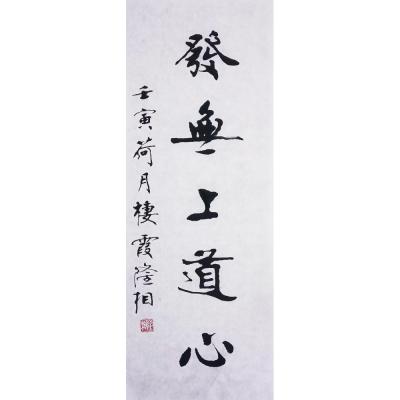 發無上道心
壬寅荷月棲霞隆相